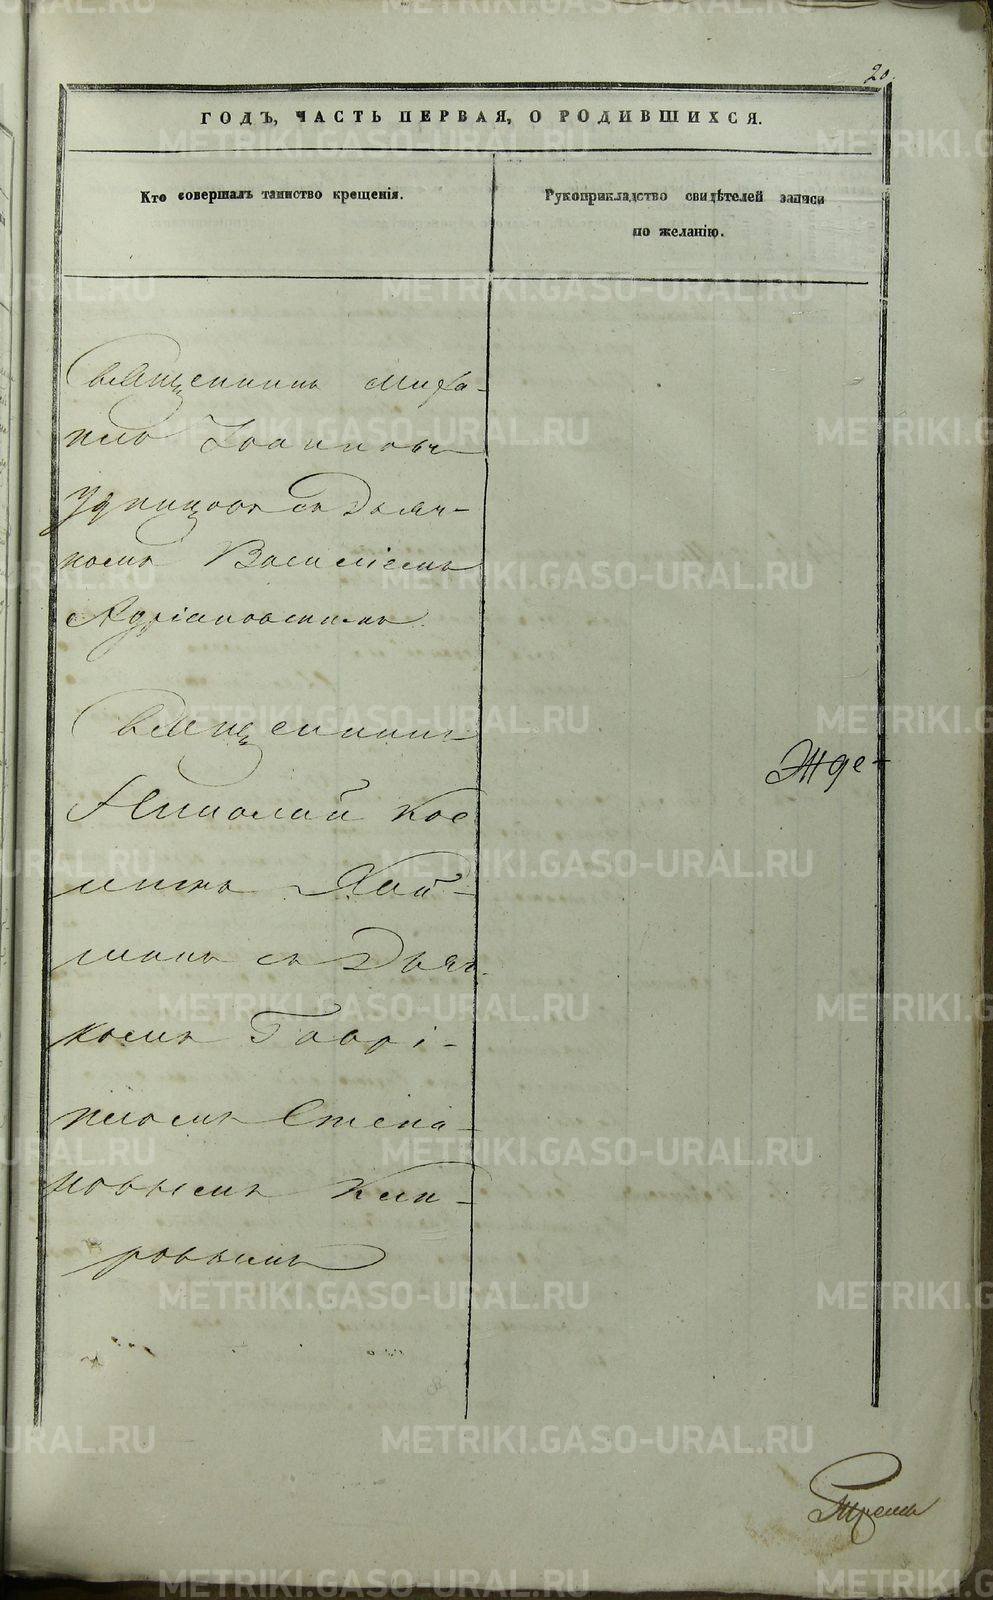 20.
ГОДЪ, ЧАСТЬ ПЕРВАЯ, О РОДИВШИХСЯ.
Кто совершалъ таинство крещенія.
Рукоприкладство свидѣтелей записи
по желанію.
Священникъ Миха-
илъ Іоанновъ
Удинцовъ съ Дьяч-
комъ Василіемъ
Адріановскимъ.
Священникъ
Николай Кос
минъ
съ Дьяч-
комъ Гаврі-
иломъ Степа-
новымъ Кип-
ровымъ
METRIKI.GASO-URAL.RU